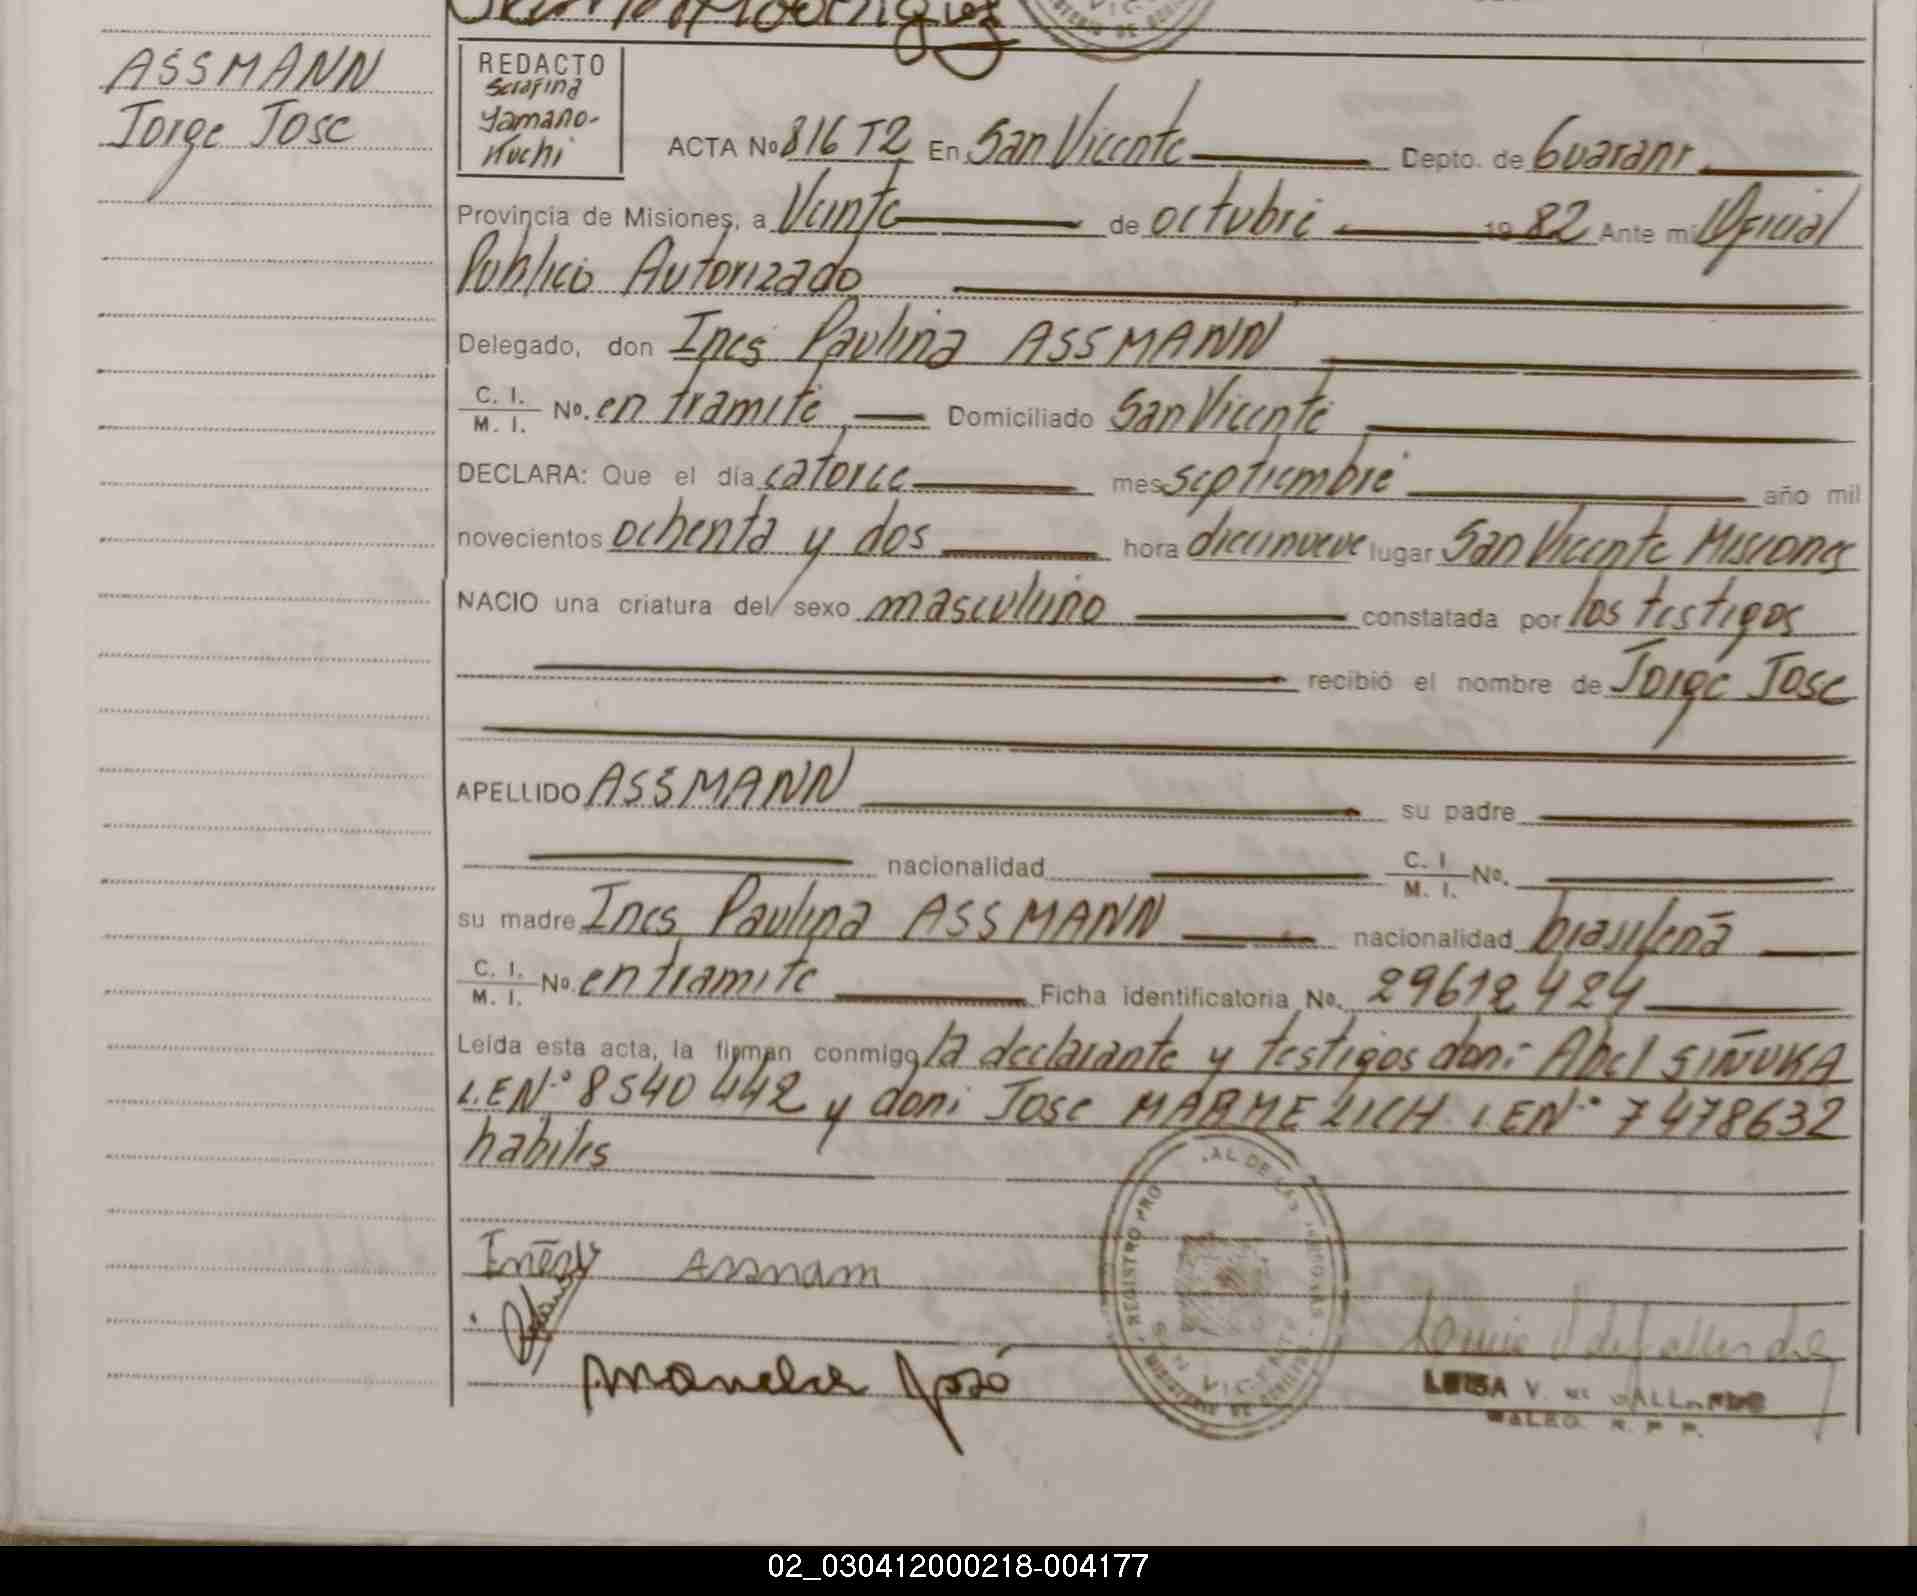 ASSMANN
Jorge Jose
REDACTO
Serafina
Yamano-
Kuchi
ACTA Nº 816 T2 En San Vicente Depto. de Guarani
Provincia de Misiones, a Veinte de octubre 1982 Ante mi Oficial
Publico Autorizado
Delegado, don Ines Paulina ASSMANN
C. I. M. I. Nº. en tramite Domiciliado San Vicente
DECLARA: Que el día catorce mes septiembre año mil
novecientos ochenta y dos hora diecinueve lugar San Vicente Misiones
NACIO una criatura del sexo masculino constatada por los testigos
recibió el nombre de Jorge Jose
APELLIDO ASSMANN su padre
nacionalidad C. I. M. I. Nº.
su madre Ines Paulina ASSMANN nacionalidad brasileña
C. I. M. I. Nº. en tramite Ficha identificatoria No. 29612424
Leída esta acta, la firman conmigo la declarante y testigos don: Abel SIÑUKA
L.E Nº 8540442 y don: Jose MARMELICH L.E Nº 7478632
habiles
Assmam
José
REGISTRO PRO
LUISA V. DE GALLARDO
02_030412000218-004177